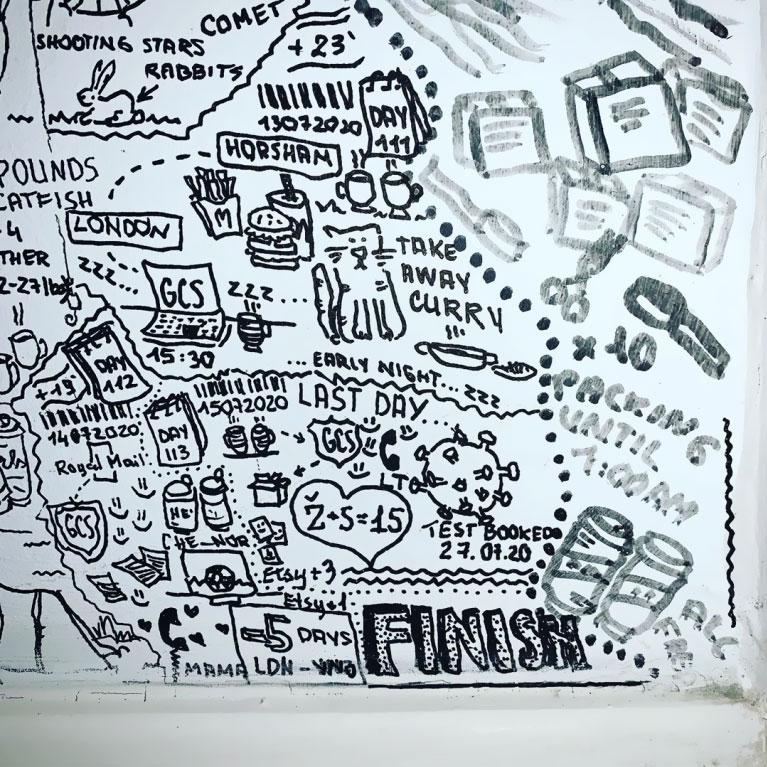 COMET
SHOOTING STARS
RABBITS
+ 23'
13072020
DAY
111
HORSHAM
POUNDS
CATFISH
4
LONDON
M
zzz...
GCS
zzz...
15:30
TAKE
AWAY
CURRY
...EARLY NIGHT...zzz
DAY
112
+19
14072020
Royal Mail
GCS
15072020
DAY
113
LAST DAY
GCS
LTG
Ž+S=15
TEST BOOKED
27.07.20
CHE_NOR
Etsy+3
Etsy+1
-5 DAYS
MAMA
LDN - VNO
FINISH
x 10
PACKING
UNTIL
1:00AM
ALC
FREE